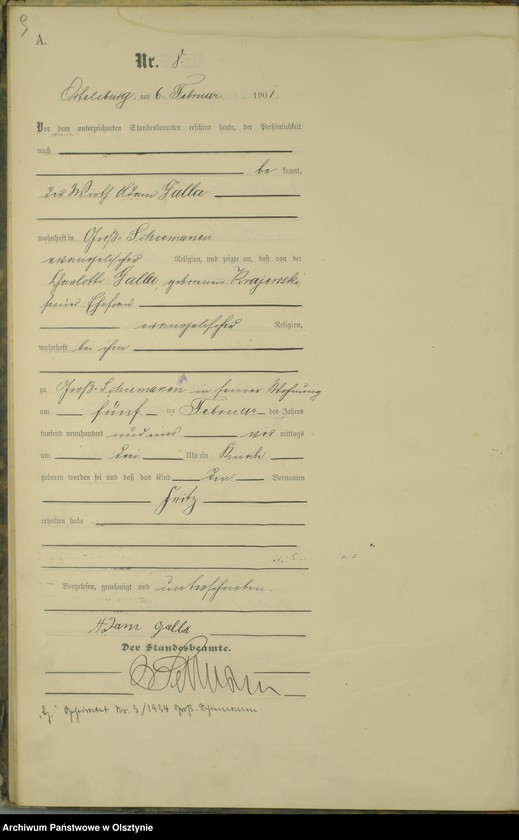 A.
Nr. 8.
Ortelsburg, am 6 Februar 1901.
Vor dem unterzeichneten Standesbeamten erschien heute, der Persönlichkeit
nach
bekannt,
der Wirth Adam Galla
wohnhaft in Groß-Schiemanen
evangelischer Religion, und zeigte an, daß von der
Charlotte Galla, geborenen Krajewski,
seiner Ehefrau
evangelischer Religion,
wohnhaft bei ihm
zu Groß-Schiemanen in seiner Wohnung
am fünf ten Februar des Jahres
tausend neunhundert und eins vor mittags
um drei Uhr ein Knabe
geboren worden sei und daß das Kind den Vornamen
Fritz
erhalten habe
Vorgelesen, genehmigt und unterschrieben.
Adam Galla
Der Standesbeamte.
Geheiratet Nr. 3/1934 Groß-Schiemanen
Archiwum Państwowe w Olsztynie